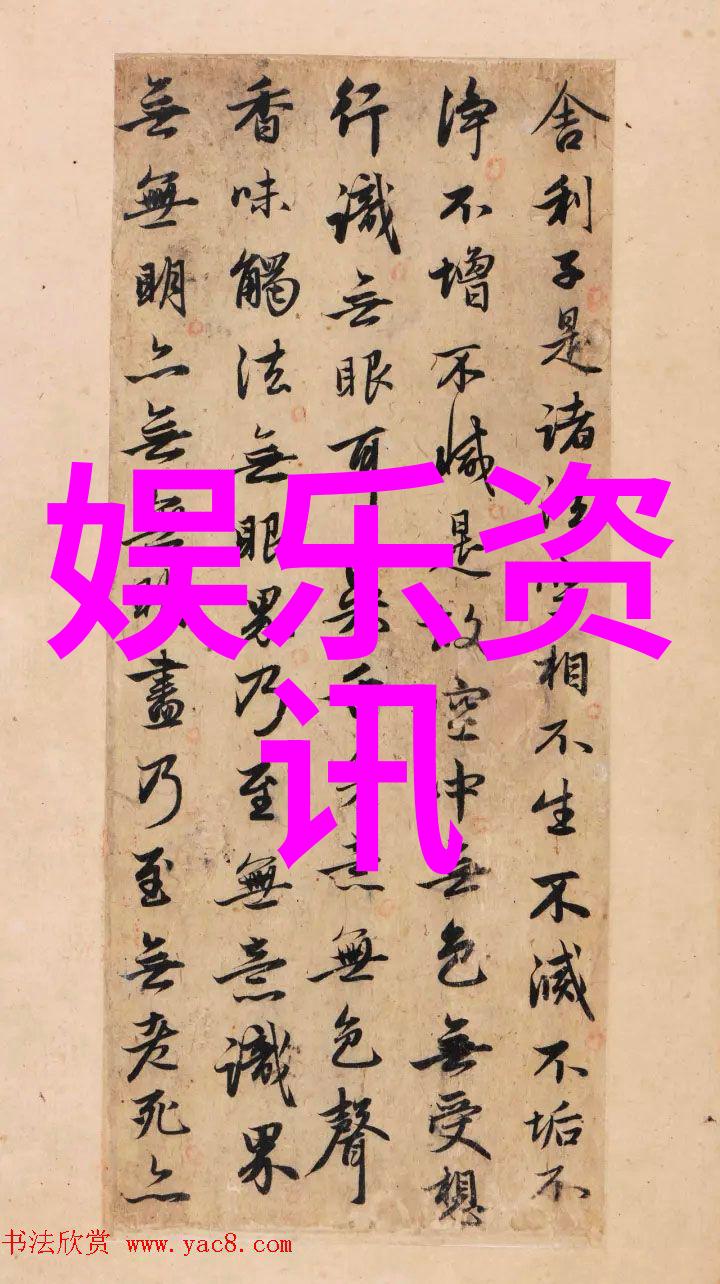 舍利子是諸法空相不生不滅不垢不
淨不增不減是故空中無色無受想
行識無眼耳鼻舌身意無色聲
香味觸法無眼界乃至無意識界
無無明亦無無明盡乃至無老死亦
娱乐资
讯
书法欣赏 www.yac8.com